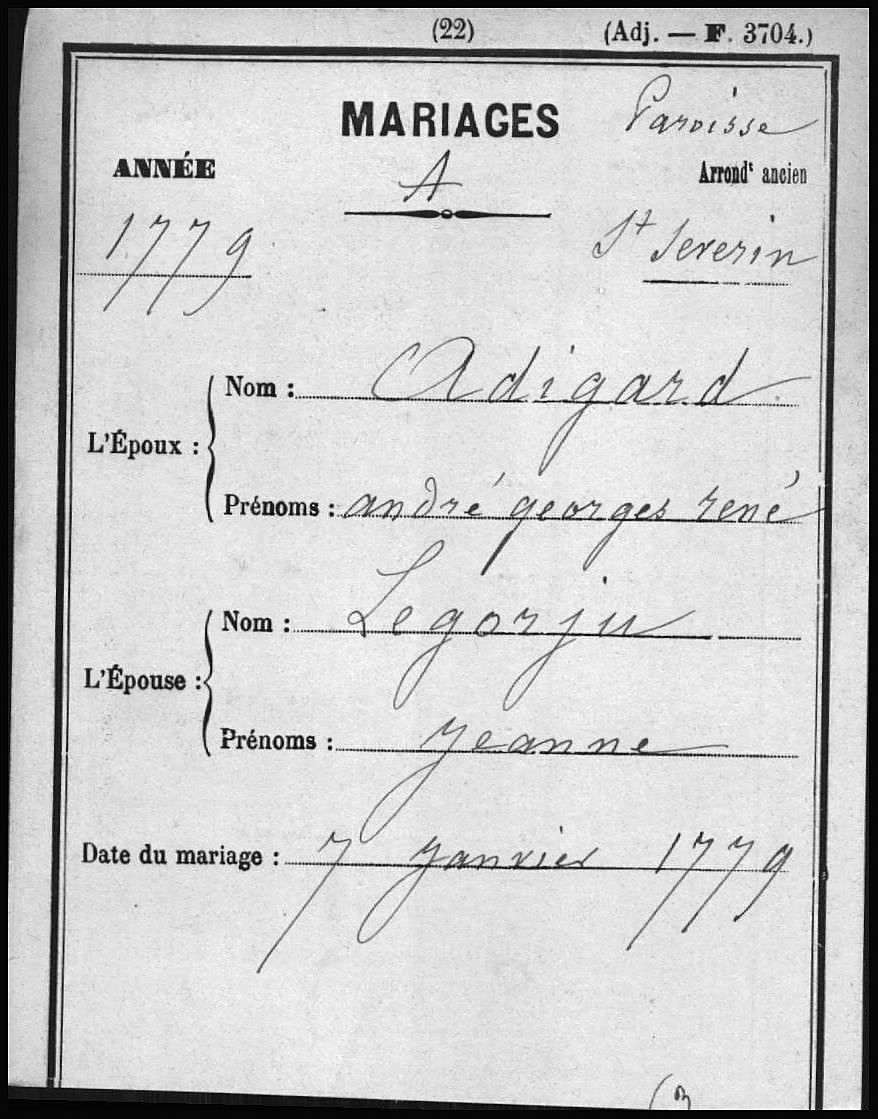 (22) (Adj. — F. 3704.)
MARIAGES Paroisse
ANNÉE A Arrondt ancien
1779 St Severin
L'Époux :
Nom : Adigard
Prénoms : andré georges rené
L'Épouse :
Nom : Legorju
Prénoms : Jeanne
Date du mariage : 7 Janvier 1779